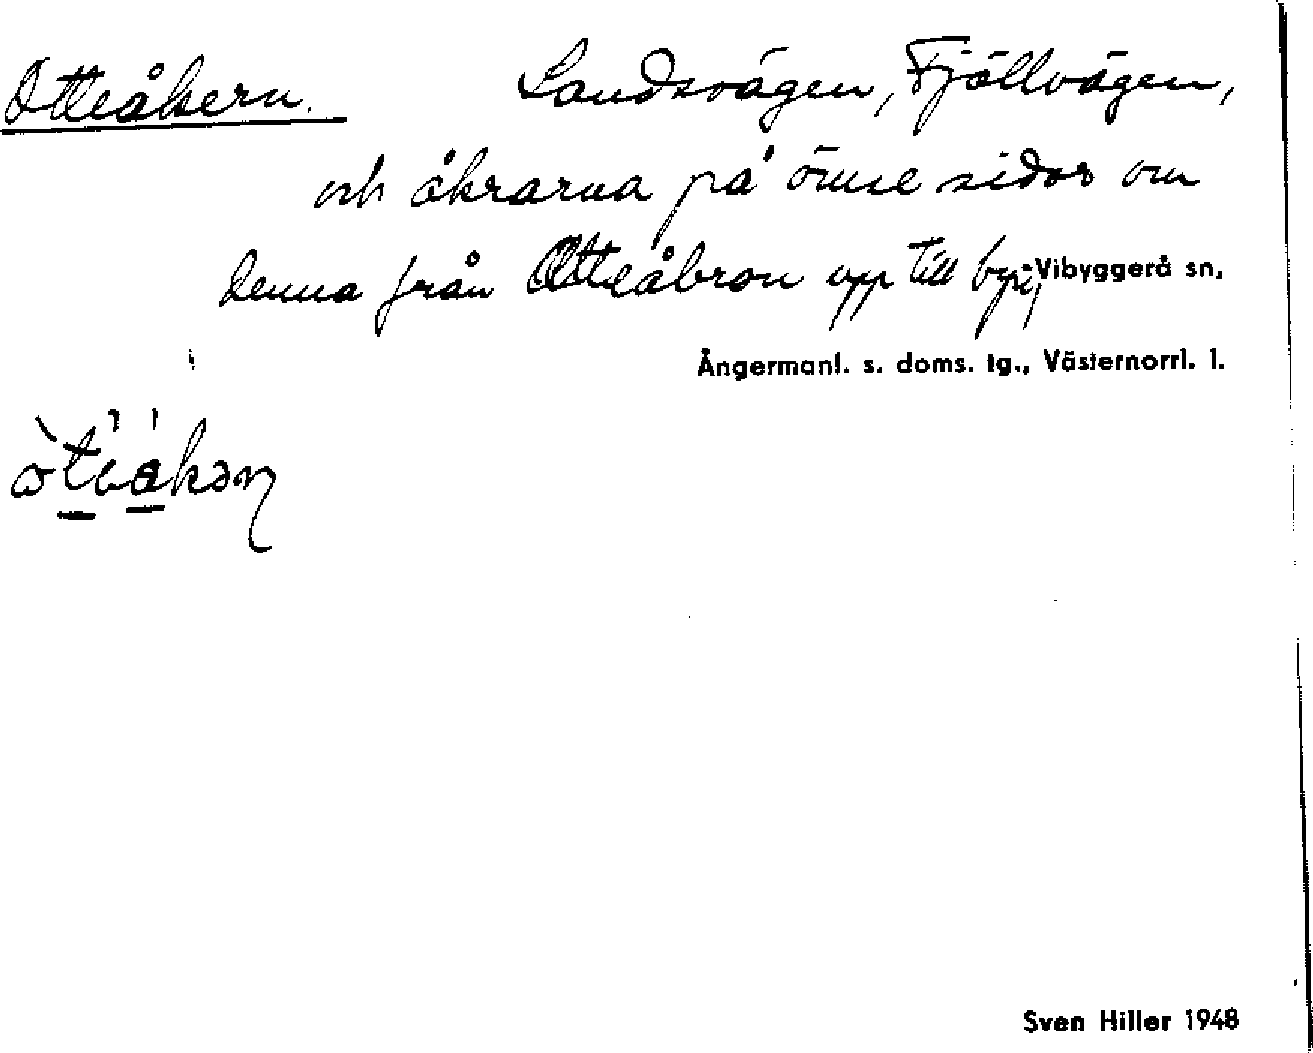 Otteåkern. Landsvägen, Fjällvägen,
och åkrarna på ömse sidor om
denna från Otteåbron upp till
Vibyggerå sn,
Ångermanl. s. doms. tg., Västernorrl. l.
Sven Hiller 1948